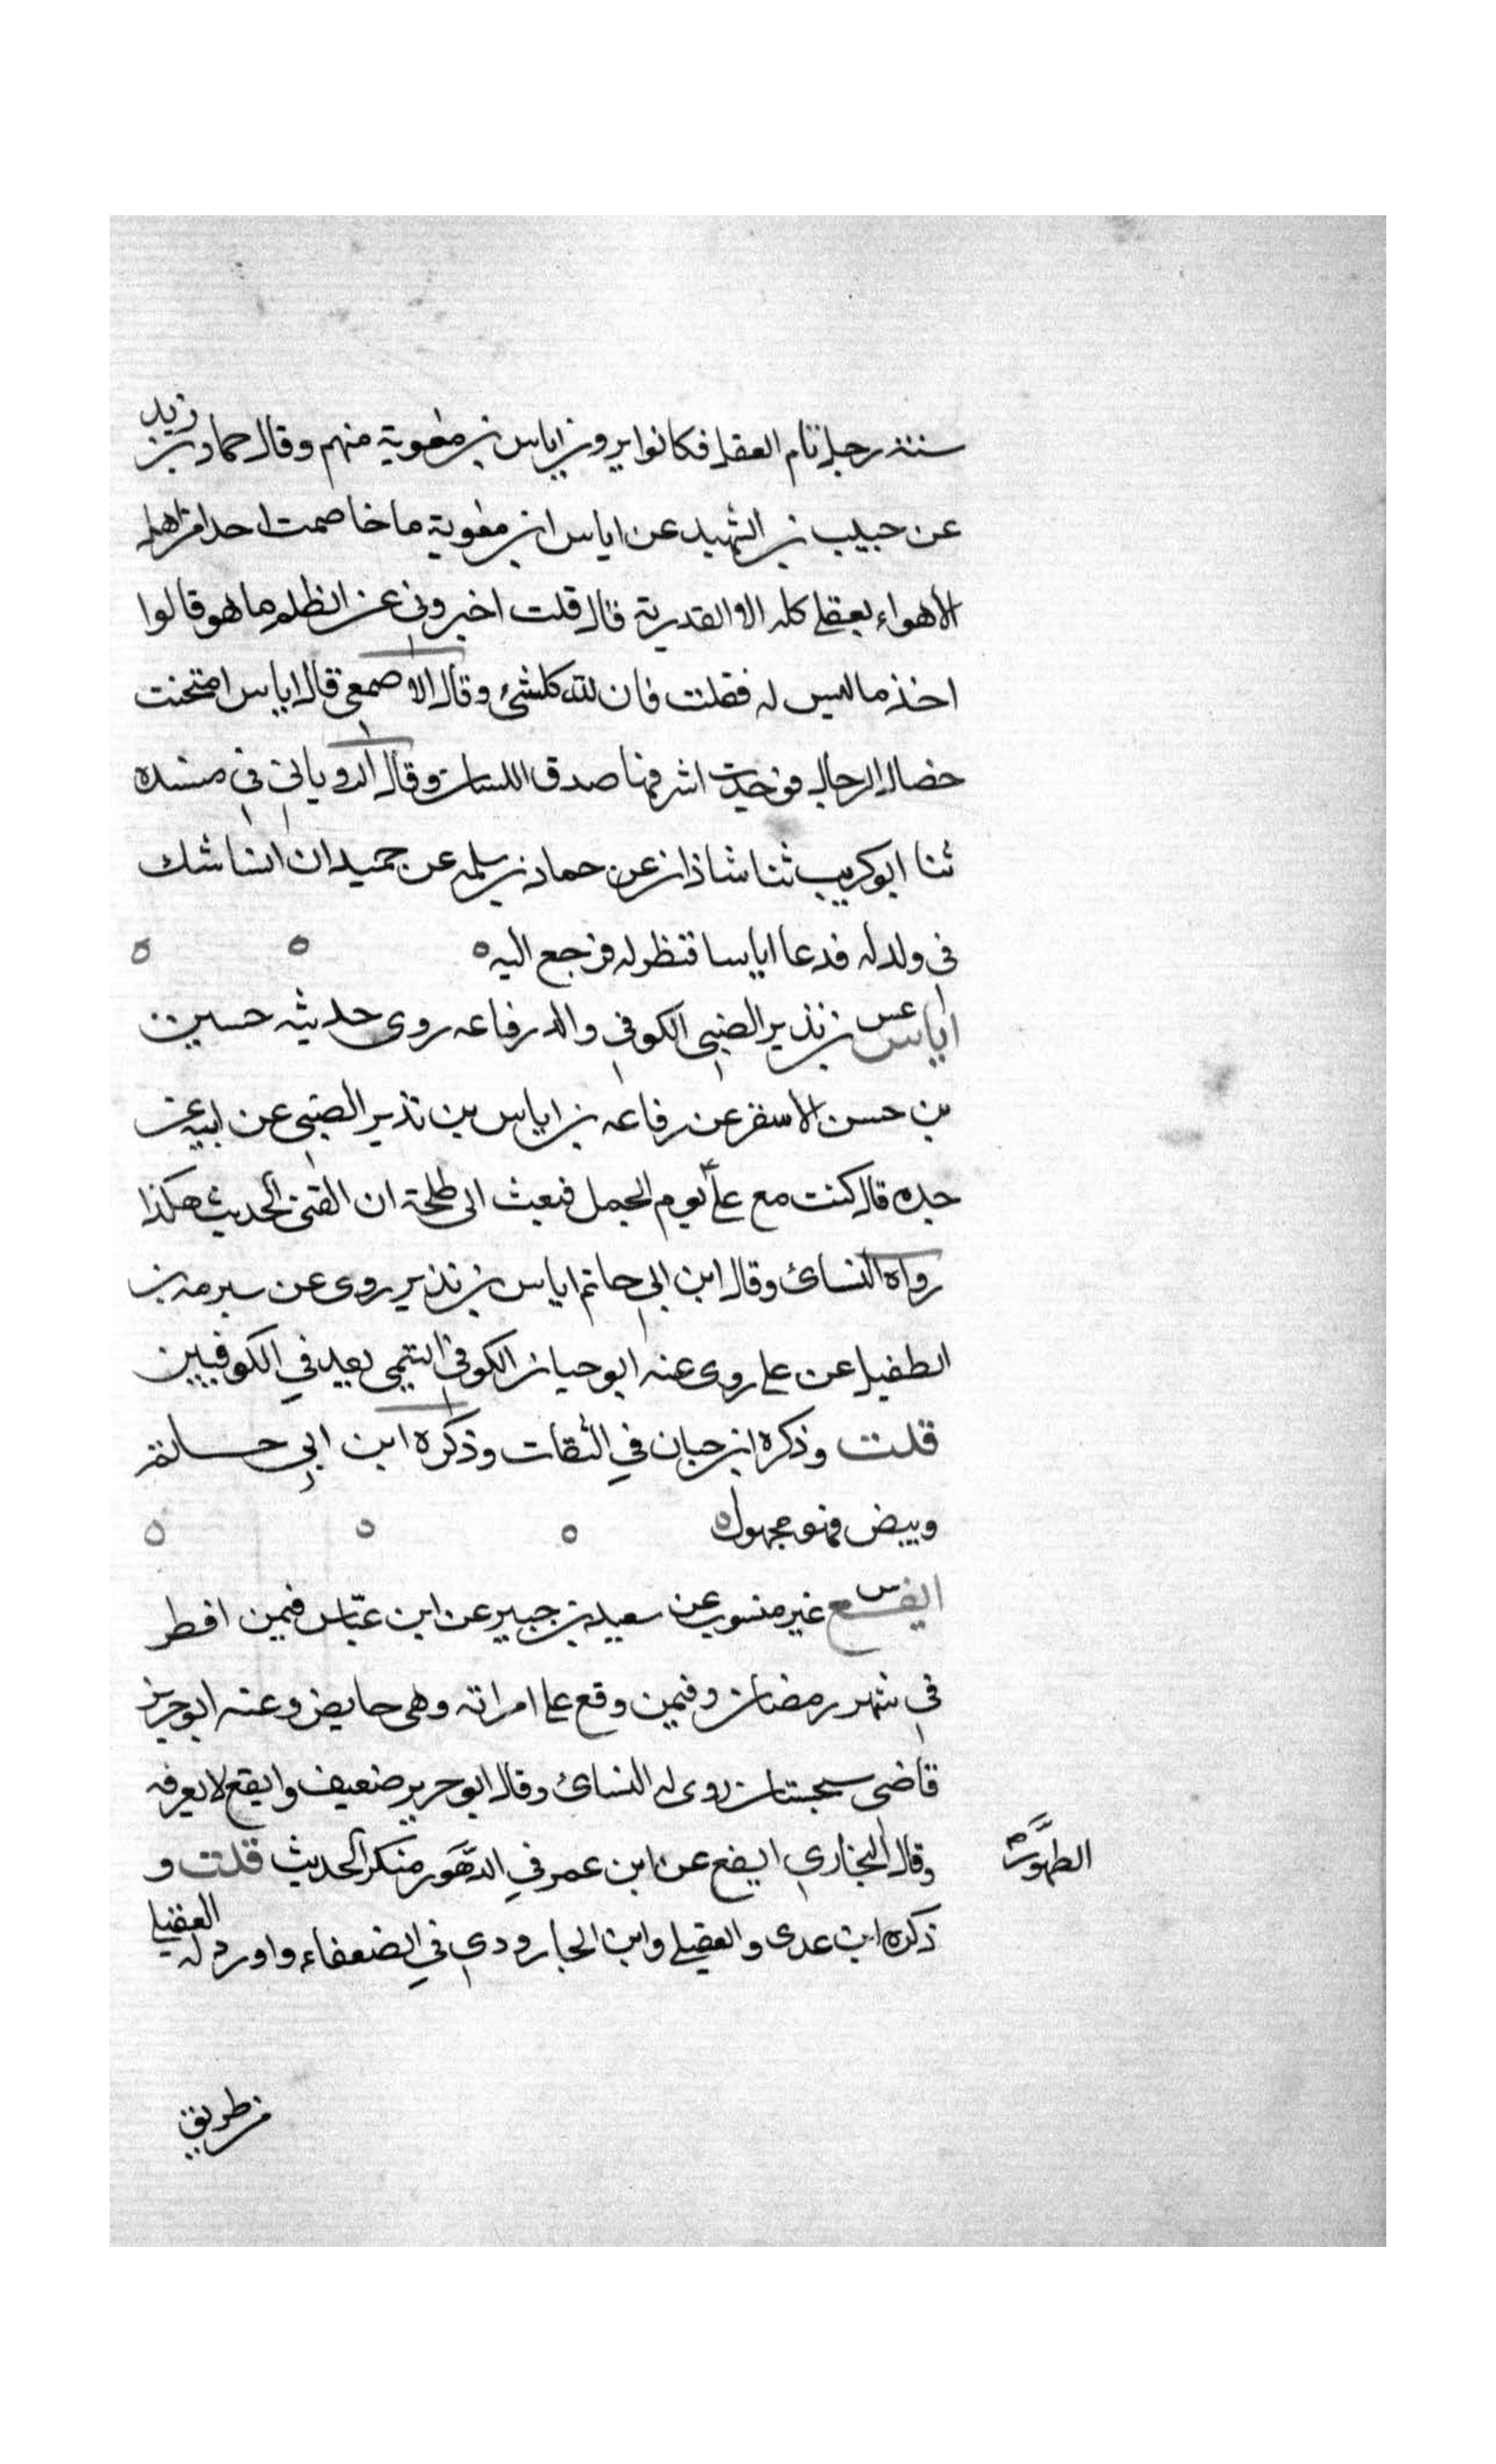 سنة رجل تام العقل فكانوا يرون اياس بن معوية منهم وقال حماد بن زيد
عن حبيب بن الشهيد عن اياس ابن معوية ما خاصمت احدا من اهل
الاهواء بعقلى كله الا القدرية قال قلت اخبرونى عن الظلم ما هو قالوا
اخذ ما ليس له فقلت فان لله كلشئ وقال الاصمعى قال اياس امتحنت
خصال الرجال فوجدت اشرفها صدق اللسان وقال الرويانى فى مسنده
ثنا ابو كريب ثنا شاذان عن حماد بن سلمه عن حميد ان انسا شك
فى ولد له فدعا اياسا فنظر له فرجع اليه ه
اياس عس بن نذير الضبى الكوفى والد رفاعه روى حديثه حسين
بن حسن الاسقر عن رفاعه بن اياس بن نذير الضبى عن ابيه عن
جده قال كنت مع على يوم الجمل فبعث الى طلحة ان القنى الحديث هكذا
رواه النسائ وقال ابن ابي حاتم اياس بن نذير روى عن سبرمه بن
الطفيل عن على روى عنه ابو حيان الكوفى التيمى يعد في الكوفيين
قلت وذكره ابن حبان في الثقات وذكره ابن ابي حاتم
وبيض فهو مجهول ه
ايفع س غير منسوب عن سعيد بن جبير عن ابن عباس فيمن افطر
فى شهر رمضان وفيمن وقع على امراته وهى حايض وعنه ابو حريز
قاضى سجستان روى له النسائ وقال ابو حرير ضعيف وايفع لا يعرفه
وقال البخاري ايفع عن ابن عمر في الدهور منكر الحديث قلت و
الطهور صح
ذكره ابن عدى والعقيلى وابن الجارودي في الضعفاء واورد له العقيلى
من طريق